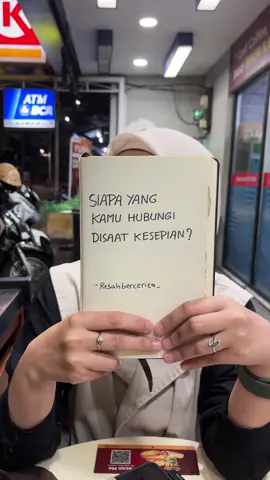 K
ATM
BCA
SIAPA YANG
KAMU HUBUNGI
DISAAT KESEPIAN?
- Resahbercerita_